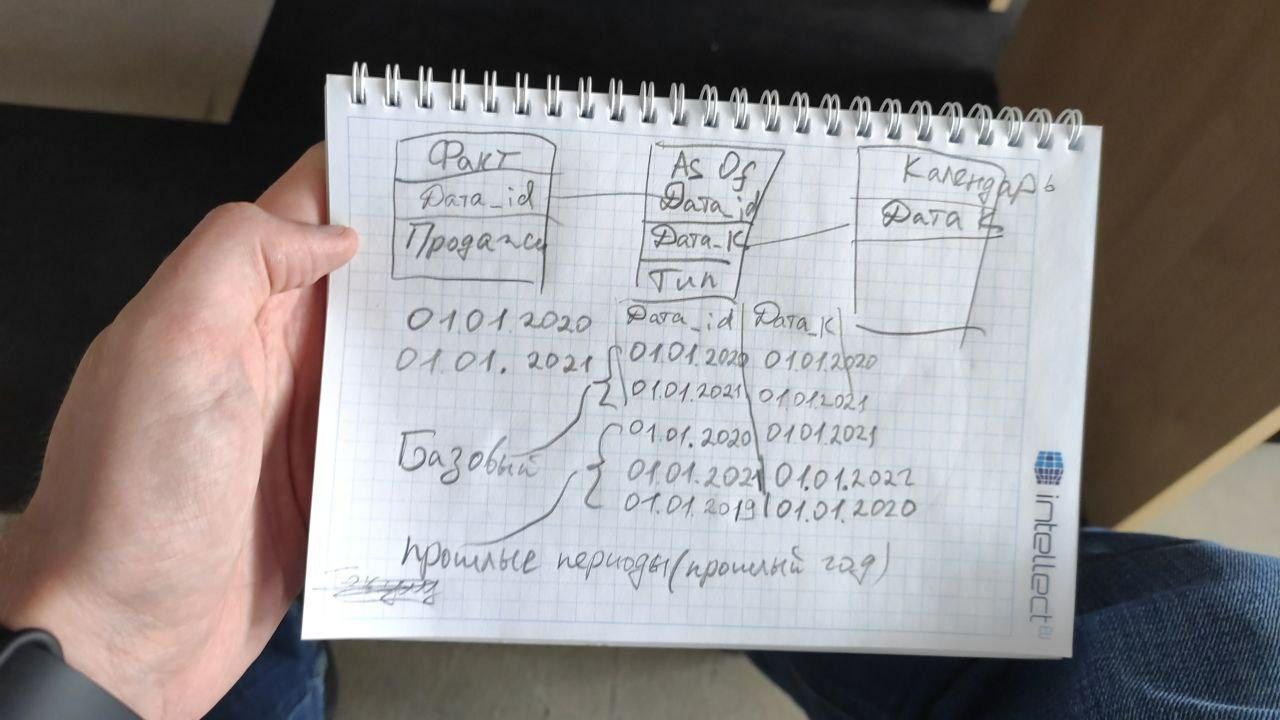 Факт
Дата_id
Продажи
As Of
Дата_id
Дата_К
Тип
Календарь
Дата К
01.01.2020
01.01.2021
Дата_id Дата_К
01.01.2020 01.01.2020
01.01.2021 01.01.2021
01.01.2020 01.01.2021
01.01.2021 01.01.2022
01.01.2019 01.01.2020
Базовый
прошлые периоды (прошлый год)
intellect